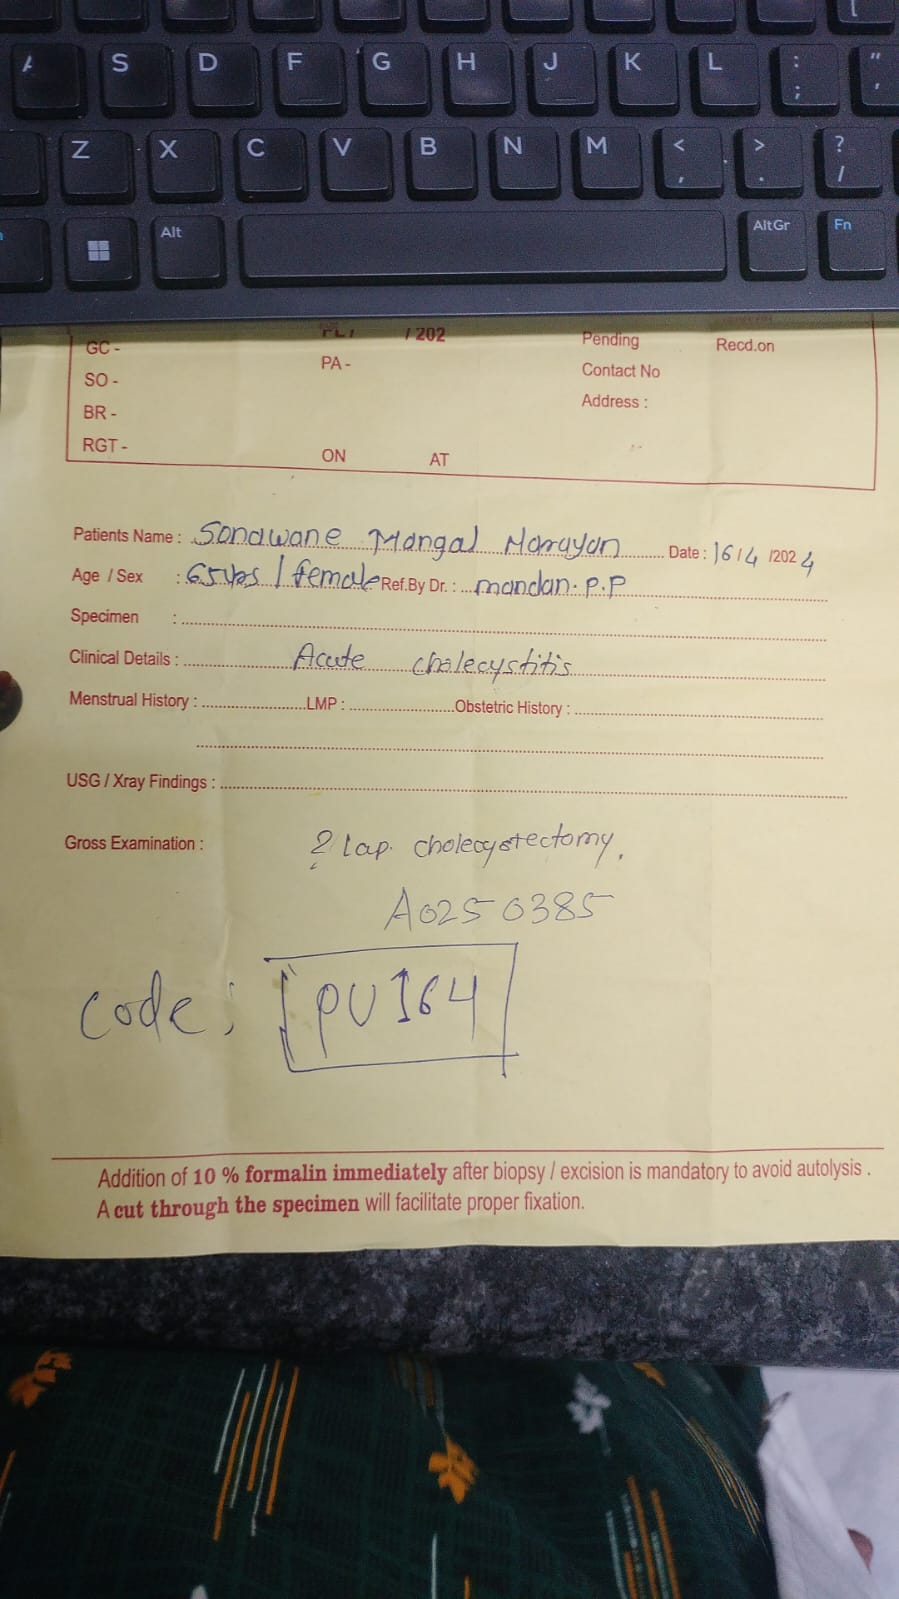 A S D F G H J K L : ; " '
Z X C V B N M < , > . ? /
Alt AltGr Fn
GC - / 202 Pending Recd.on
SO - PA - Contact No
BR - Address :
RGT - ON AT
Patients Name : Sonawane Mangal Narayan Date : 16/4 /2024
Age / Sex : 65yrs / female Ref.By Dr. : mandan. P.P
Specimen :
Clinical Details : Acute cholecystitis
Menstrual History : LMP : Obstetric History :
USG / Xray Findings :
Gross Examination : ? lap. cholecystectomy.
A0250385
Code : PU164
Addition of 10 % formalin immediately after biopsy / excision is mandatory to avoid autolysis .
A cut through the specimen will facilitate proper fixation.